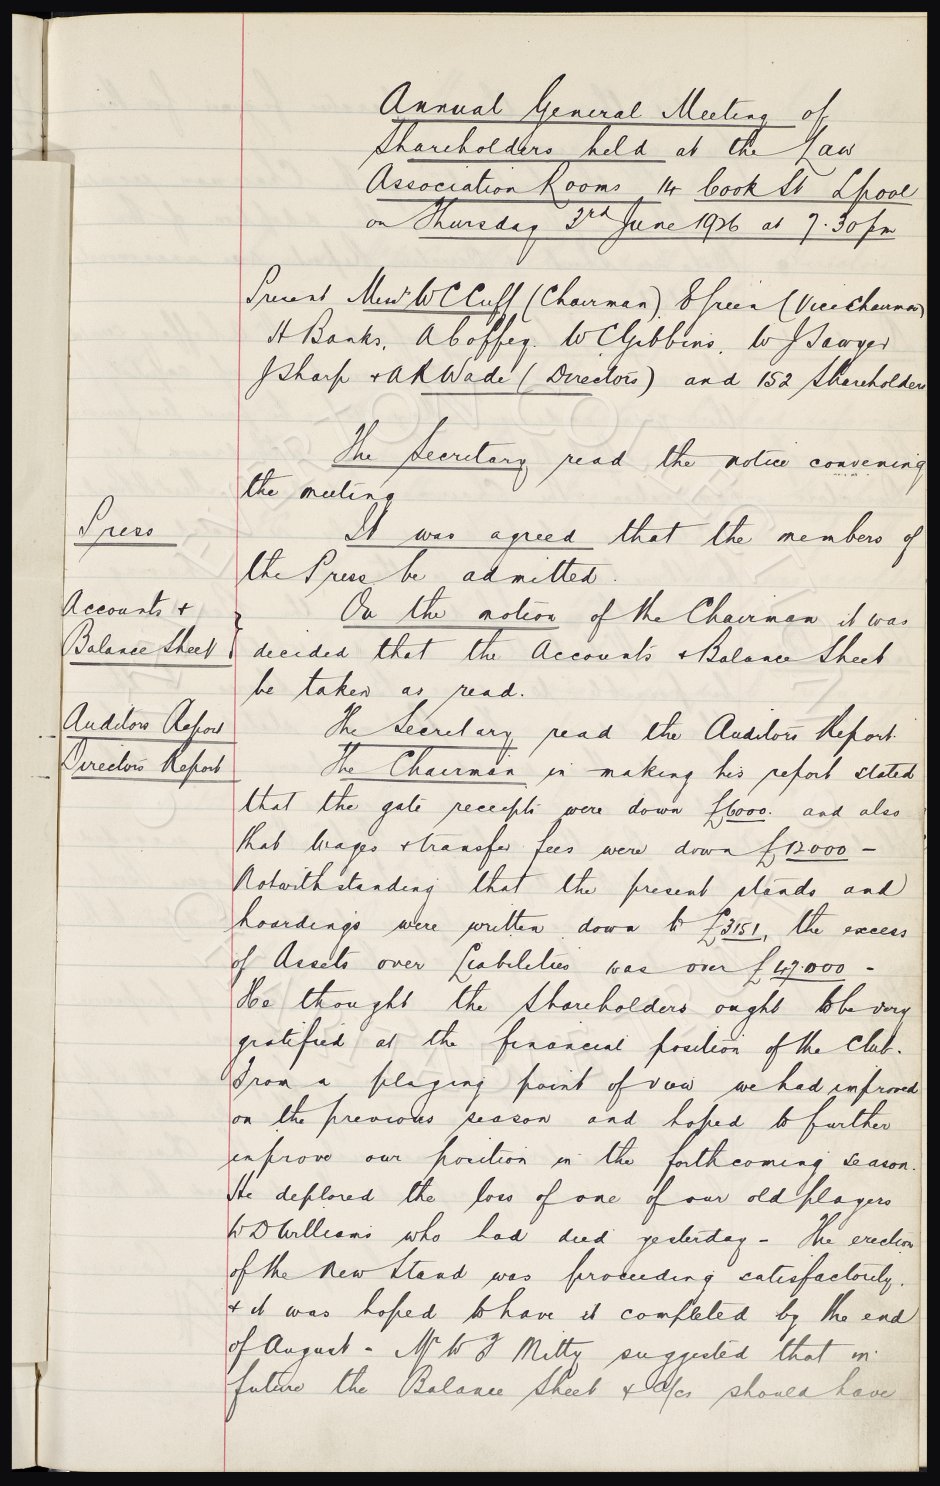 Annual General Meeting of
Shareholders held at the Law
Association Rooms 14 Cook St Lpool
on Thursday 3rd June 1926 at 7.30 pm
Present Messrs W C Cuff (Chairman) E Green (Vice Chairman)
H Banks, A Coffey. W C Gibbins, W J Sawyer
J Sharp + A R Wade (Directors) and 152 Shareholders
The Secretary read the notice convening
the meeting
Press
It was agreed that the members of
the Press be admitted.
Accounts +
Balance Sheet }
On the motion of the Chairman it was
decided that the Accounts + Balance Sheet
be taken as read.
Auditors Report
The Secretary read the Auditors Report.
Directors Report
The Chairman in making his report stated
that the gate receipts were down £6000. and also
that Wages + transfer fees were down £12000 -
Notwithstanding that the present stands and
hoardings were written down to £3151, the excess
of Assets over Liabilities was over £47.000 -
He thought the Shareholders ought to be very
gratified at the financial position of the Club.
From a playing point of view we had improved
on the previous season and hoped to further
improve our position in the forthcoming season.
He deplored the loss of one of our old players
W D Williams who had died yesterday - The erection
of the New Stand was proceeding satisfactorily.
+ it was hoped to have it completed by the end
of August - Mr W J Mitty suggested that in
future the Balance Sheet + a/cs should have